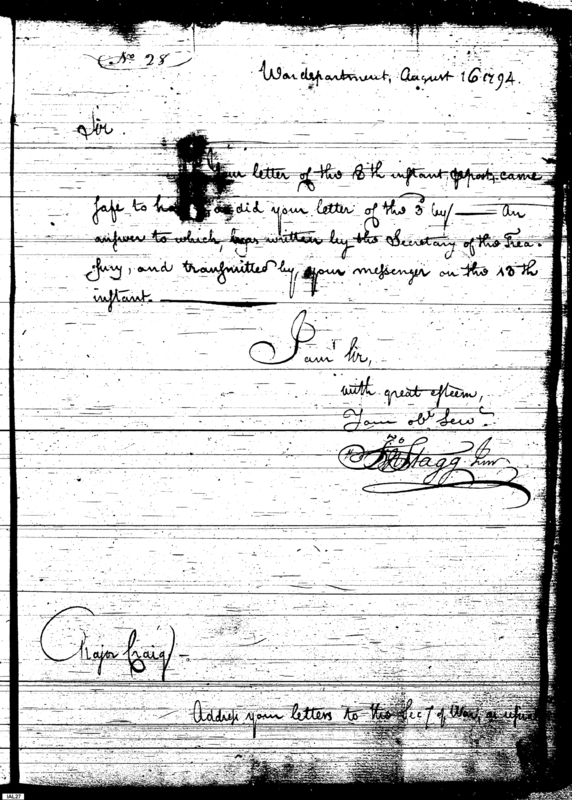 No 28
War department, August 16 1794.
Sir
Your letter of the 8th instant came
safe to as did your letter of the 3 by — An
answer to which, was written by the Secretary of the Trea-
sury, and transmitted by your messenger on the 13th
instant.
I am Sir,
with great esteem,
Your obt Servt
Jno Stagg Junr
Major Craig
Address your letters to the Secy of War, as usual
IAL27